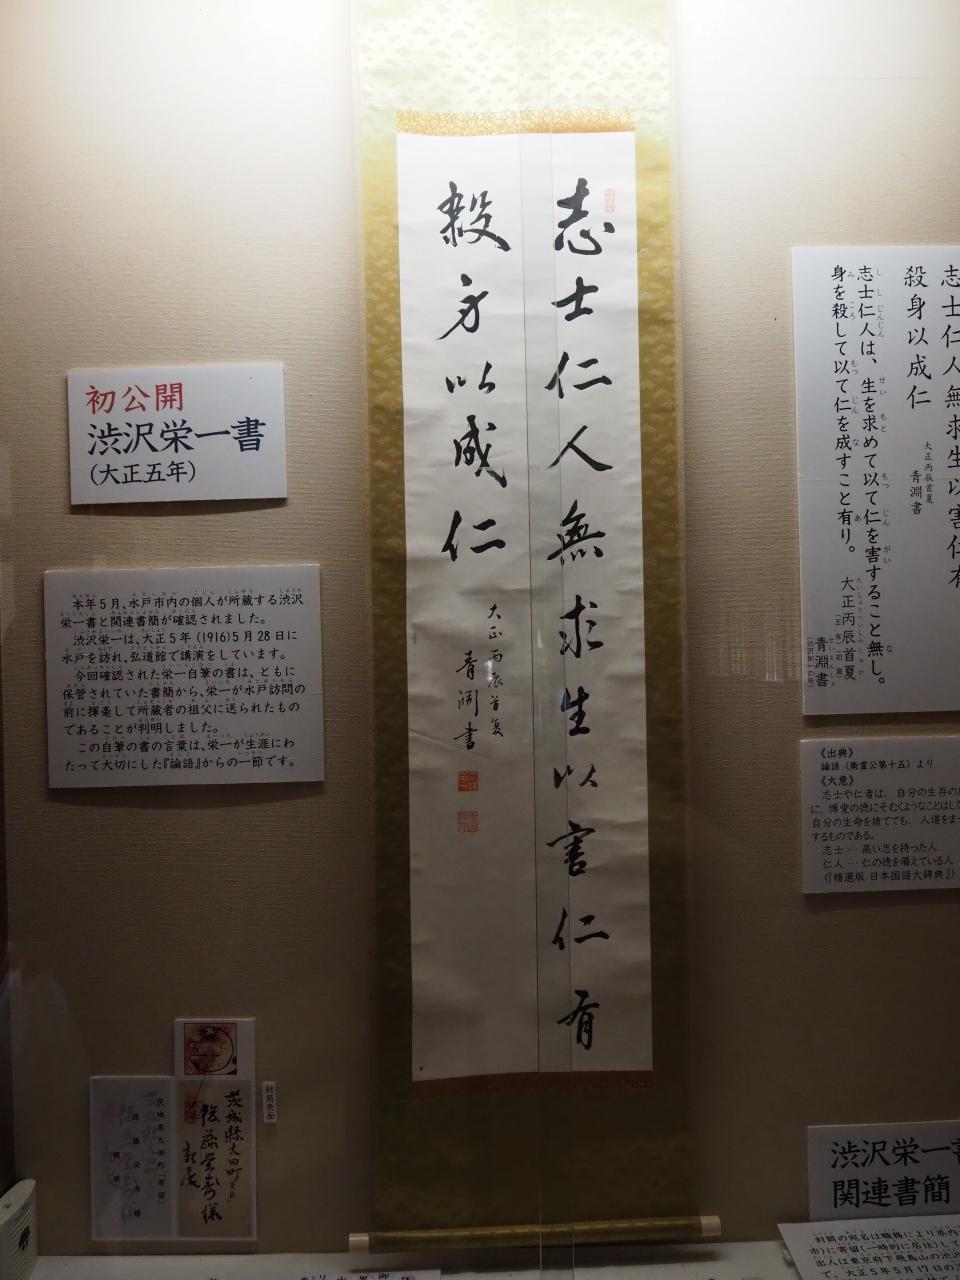 志士仁人無求生以害仁有
殺身以成仁
大正丙辰首夏
青淵書
初公開
渋沢栄一書
(大正五年)
本年5月、水戸市内の個人が所蔵する渋沢
栄一書と関連書簡が確認されました。
渋沢栄一は、大正5年(1916)5月28日に
水戸を訪れ、弘道館で講演をしています。
今回確認された栄一自筆の書は、ともに
保管されていた書簡から、栄一が水戸訪問の
前に揮毫して所蔵者の祖父に送られたもの
であることが判明しました。
この自筆の書の言葉は、栄一が生涯にわ
たって大切にした『論語』からの一節です。
志士仁人無求生以害仁有
殺身以成仁
大正丙辰首夏
青淵書
志士仁人は、生を求めて以て仁を害すること無し。
身を殺して以て仁を成すこと有り。
大正丙辰首夏
青淵書
《出典》
論語(衛霊公第十五)より
《大意》
志士や仁者は、自分の生存のた
に、博愛の徳にそむくようなことはし
自分の生命を捨てても、人道をま
するものである。
志士…高い志を持った人
仁人…仁の徳を備えている人
(『精選版 日本国語大辞典』)
封筒表面
茨城縣太田町
後藤栄寿様
親展
茨城県太田町(寄留)
後藤栄寿様
親展
渋沢栄一書
関連書簡
封筒の宛名は職務により県内
市)に寄留(一時的に居住)して
出人は東京府下飛鳥山の渋沢
て、大正5年5月17日の